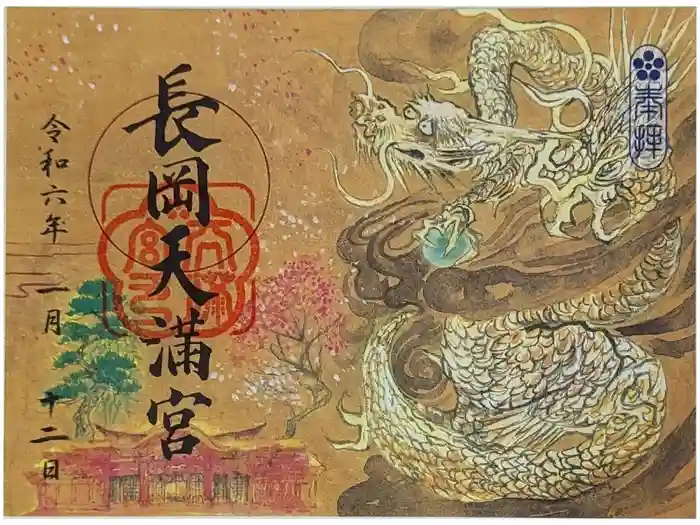 奉拝
長岡天満宮
令和六年
一月
十二日